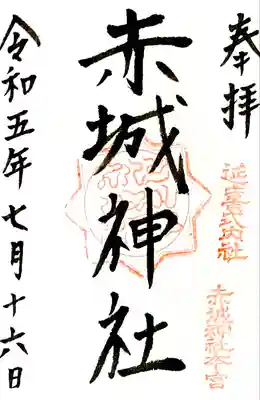 奉拝
延喜式内社
赤城神社本宮
赤城神社
令和五年七月十六日